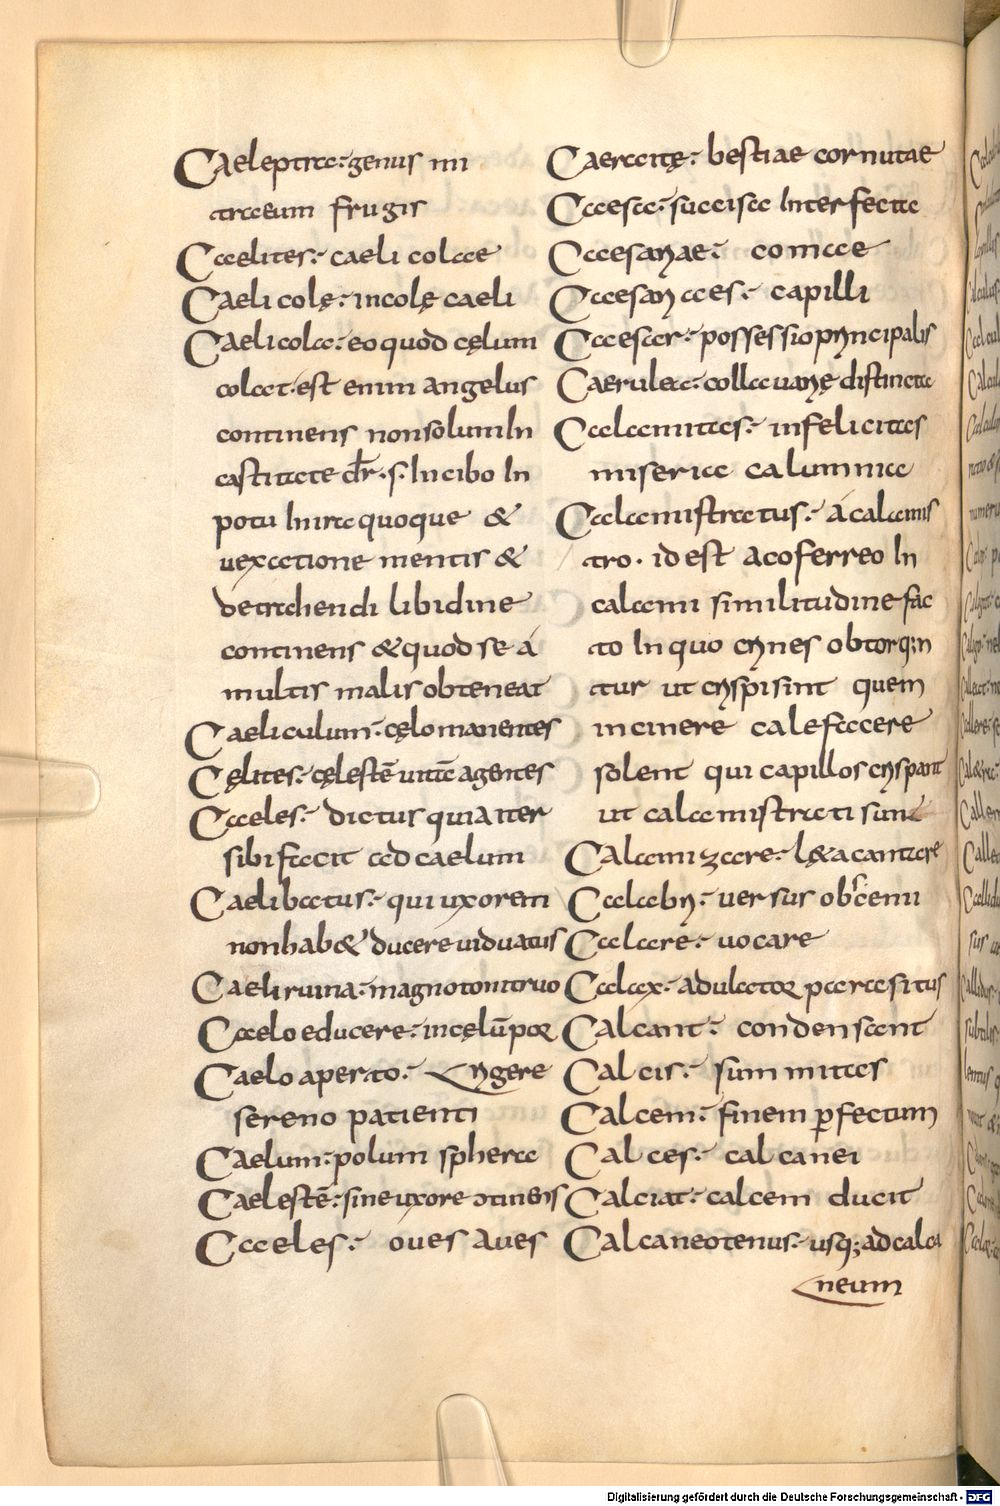 Caeleptra: genus mi
traeum frugis
Caelites: caeli colae
Caeli colę: incolę caeli
Caelicola: eo quod cęlum
colat. est enim angelus
continens non solum In
castitate dr̄. s. In cibo In
potu In ira quoque &
uexatione mentis &
detrahendi libidine
continens & quod se á
multis malis obteneat
Caeliculum: cęlo manentes
Cęlites: cęlestē uitā agentes
Caeles: dictus quia iter
sibi facit ad caelum
Caelibatus: qui uxorem
non hab& ducere uiduatus
Caeli ruina: magno tonitruo
Caelo educere: in cęlū por
rigere
Caelo aperto:
sereno patienti
Caelum: polum sphera
Caelestē: sine uxore ɔtinens
Caeles: oues aues
Caeracitę: bestiae cornutae
Caesa: succisa Interfecta
Caesariae: comae
Caesaries: capilli
Caesar: possessio principalis
Caerulea: colla uarię distincta
Calamitas: infelicitas
miseria calumnia
Calamistratus: á calamis
tro. id est aco ferreo In
calami similitudine fac
to In quo crines obtorq;n
tur ut crispi sint quem
in cinere calefacere
solent qui capillos crispant
ut calamistrati sunt
Calamizare: l&a cantare
Calabri: uersus obsceni
Calare: uocare
Calax: adulator parasitus
Calcant: condensant
Calcis: summitas
Calcem: finem ꝑfectum
Calces: calcanei
Calciat: calcem ducit
Calcaneotenus: usq; ad calca
neum
Digitalisierung gefördert durch die Deutsche Forschungsgemeinschaft - DFG